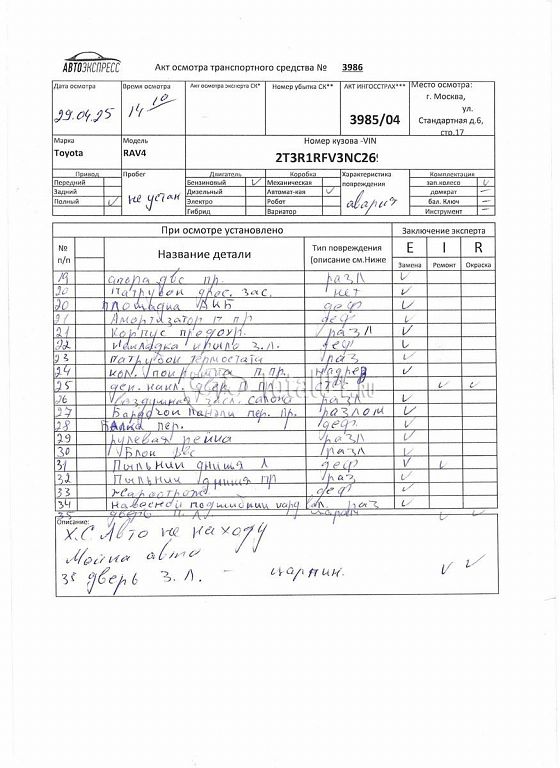 АВТОЭКСПРЕСС
Акт осмотра транспортного средства № 3986
Дата осмотра
29.04.25
Время осмотра
14 10
Акт осмотра эксперта СК*
Номер убытка СК**
АКТ ИНГОССТРАХ***
3985/04
Место осмотра:
г. Москва,
ул.
Стандартная д.6,
стр.17
Марка
Toyota
Модель
RAV4
Номер кузова -VIN
2T3R1RFV3NC26
Привод
Передний
Задний
Полный ✓
Пробег
не устан
Двигатель
Бензиновый ✓
Дизельный
Электро
Гибрид
Коробка
Механическая
Автомат-кая ✓
Робот
Вариатор
Характеристика
повреждения
авария
Комплектация
зап.колесо ✓
домкрат —
бал. Ключ —
Инструмент —
При осмотре установлено
Заключение эксперта
№
п/п
Название детали
Тип повреждения
(описание см.Ниже
E I R
Замена Ремонт Окраска
19 опора двс пр. разл ✓
20 Патрубок дрос. зас. нет ✓
20 площадка АКБ деф ✓
21 Амортизатор п пр деф ✓
21 Корпус предохр. разл ✓
22 накладка крыло з.л. деф ✓
23 патрубок термостата раз ✓
24 кол. покрышка п.пр. надрез ✓
25 п пр. ✓ ✓
26 салона разл ✓
27 Бардачок панели пер. пр. разлом ✓
28 Балка пер. деф ✓
29 рулевая рейка разл ✓
30 Блок двс разл ✓
31 Пыльник днища л деф ✓ ✓
32 Пыльник днища пр раз ✓
33 Жароотрож деф ✓
34 навесной подшипник кард раз ✓
35 дверь ✓ ✓
Описание:
Х.С. Авто не на ходу
Мойка авто
35 дверь З.Л. - царпин. ✓ ✓